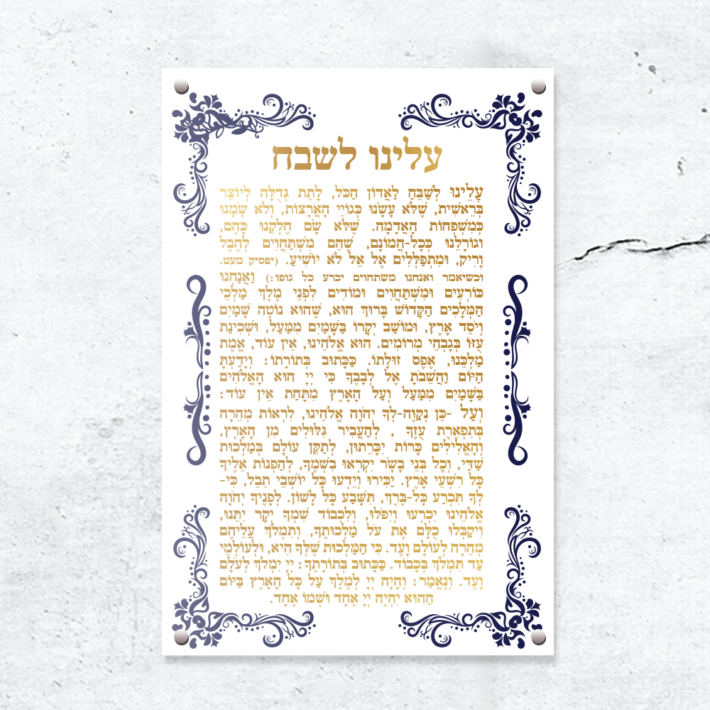 עלינו לשבח
עָלֵינוּ לְשַׁבֵּחַ לַאֲדוֹן הַכֹּל, לָתֵת גְּדֻלָּה לְיוֹצֵר
בְּרֵאשִׁית, שֶׁלֹּא עָשָׂנוּ כְּגוֹיֵי הָאֲרָצוֹת, וְלֹא שָׂמָנוּ
כְּמִשְׁפְּחוֹת הָאֲדָמָה. שֶׁלֹּא שָׂם חֶלְקֵנוּ כָּהֶם,
וְגוֹרָלֵנוּ כְּכָל-הֲמוֹנָם, שֶׁהֵם מִשְׁתַּחֲוִים לְהֶבֶל
וָרִיק, וּמִתְפַּלְלִים אֶל אֵל לֹא יוֹשִׁיעַ. (יפסיק מעט.
וכשיאמר ואנחנו משתחוים יכרע כל גופו:) וַאֲנַחְנוּ
כּוֹרְעִים וּמִשְׁתַּחֲוִים וּמוֹדִים לִפְנֵי מֶלֶךְ מַלְכֵי
הַמְּלָכִים הַקָּדוֹשׁ בָּרוּךְ הוּא, שֶׁהוּא נוֹטֶה שָׁמַיִם
וְיֹסֵד אָרֶץ, וּמוֹשַׁב יְקָרוֹ בַּשָּׁמַיִם מִמַּעַל, וּשְׁכִינַת
עֻזּוֹ בְּגָבְהֵי מְרוֹמִים. הוּא אֱלֹהֵינוּ, אֵין עוֹד, אֱמֶת
מַלְכֵּנוּ, אֶפֶס זוּלָתוֹ. כַּכָּתוּב בְּתוֹרָתוֹ: וְיָדַעְתָּ
הַיּוֹם וַהֲשֵׁבֹתָ אֶל לְבָבֶךָ כִּי יְיָ הוּא הָאֱלֹהִים
בַּשָּׁמַיִם מִמַּעַל וְעַל הָאָרֶץ מִתָּחַת אֵין עוֹד:
וְעַל -כֵּן נְקַוֶּה-לְּךָ יְהוָה אֱלֹהֵינוּ, לִרְאוֹת מְהֵרָה
בְּתִפְאֶרֶת עֻזֶּךָ , לְהַעֲבִיר גִּלּוּלִים מִן הָאָרֶץ,
וְהָאֱלִילִים כָּרוֹת יִכָּרֵתוּן, לְתַקֵּן עוֹלָם בְּמַלְכוּת
שַׁדַּי, וְכָל בְּנֵי בָשָׂר יִקְרְאוּ בִשְׁמֶךָ, לְהַפְנוֹת אֵלֶיךָ
כָּל רִשְׁעֵי אָרֶץ. יַכִּירוּ וְיֵדְעוּ כָּל יוֹשְׁבֵי תֵבֵל, כִּי-
לְךָ תִּכְרַע כָּל-בֶּרֶךְ, תִּשָּׁבַע כָּל לָשׁוֹן. לְפָנֶיךָ יְהוָה
אֱלֹהֵינוּ יִכְרְעוּ וְיִפֹּלוּ, וְלִכְבוֹד שִׁמְךָ יְקָר יִתֵּנוּ,
וִיקַבְּלוּ כֻלָּם אֶת עֹל מַלְכוּתֶךָ, וְתִמְלֹךְ עֲלֵיהֶם
מְהֵרָה לְעוֹלָם וָעֶד. כִּי הַמַּלְכוּת שֶׁלְּךָ הִיא, וּלְעוֹלְמֵי
עַד תִּמְלֹךְ בְּכָבוֹד. כַּכָּתוּב בְּתוֹרָתֶךָ: יְיָ יִמְלֹךְ לְעֹלָם
וָעֶד. וְנֶאֱמַר: וְהָיָה יְיָ לְמֶלֶךְ עַל כָּל הָאָרֶץ בַּיּוֹם
הַהוּא יִהְיֶה יְיָ אֶחָד וּשְׁמוֹ אֶחָד.